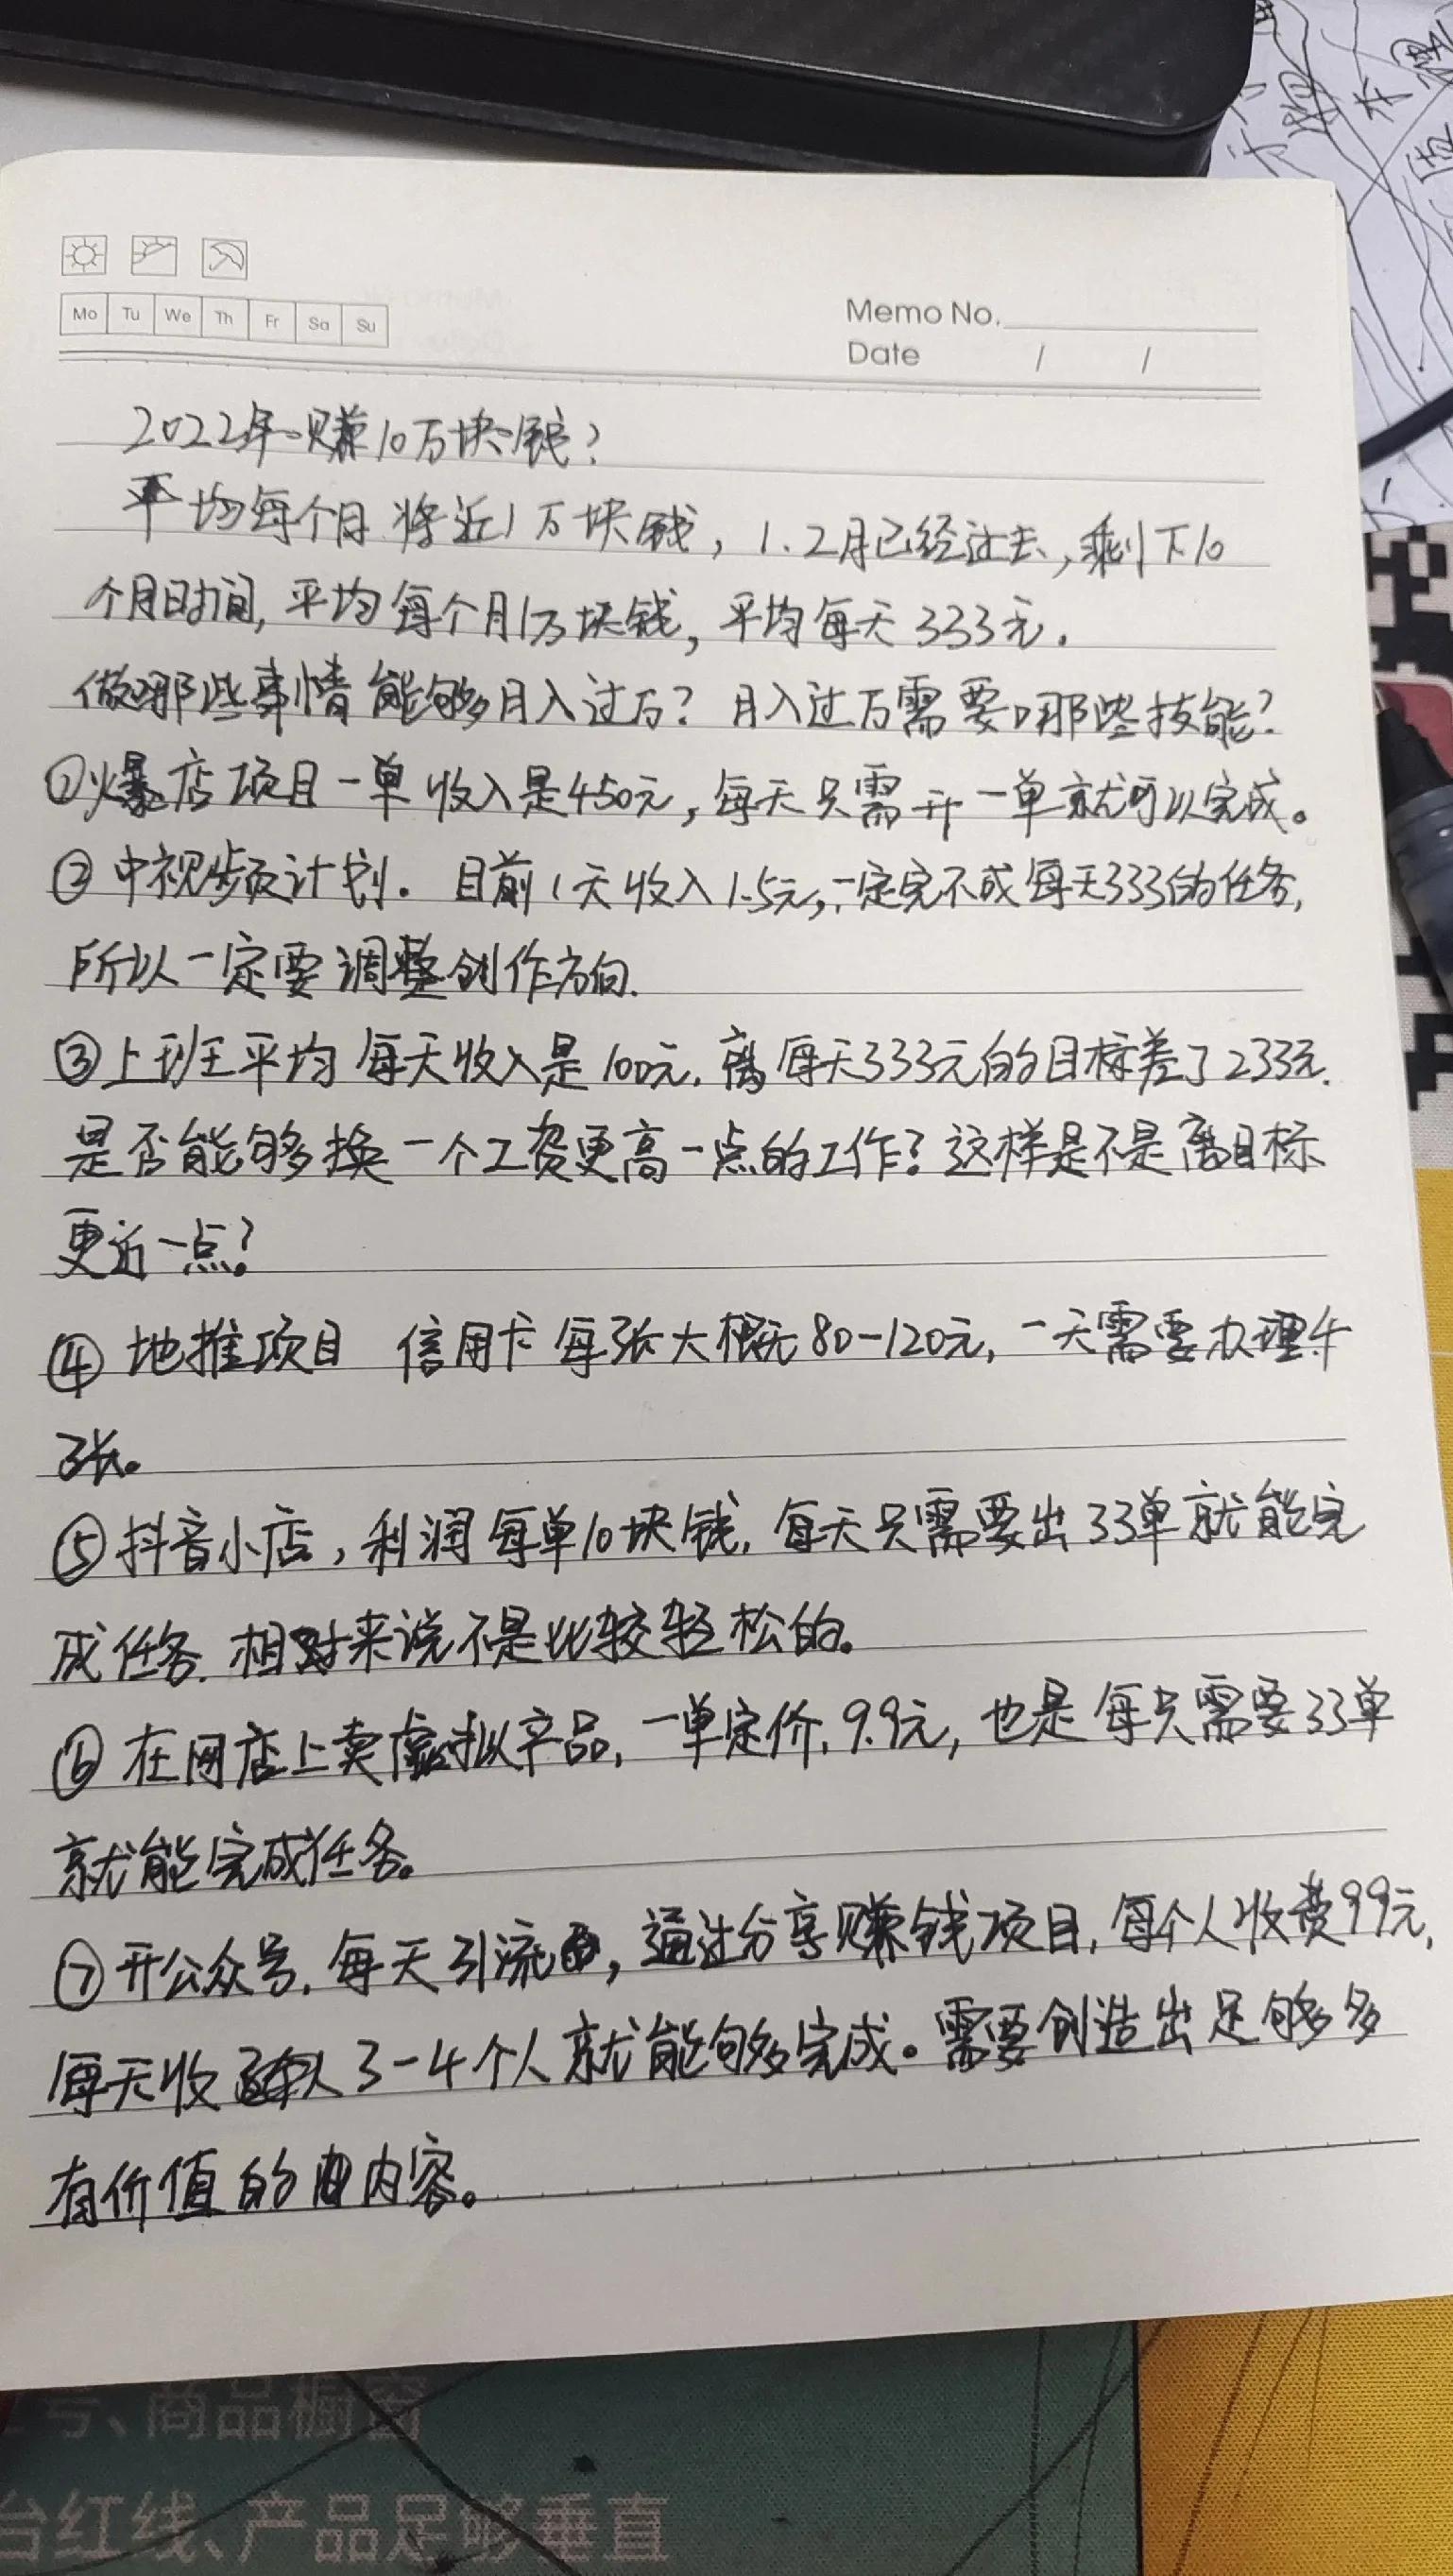 Mo Tu We Th Fr Sa Su
Memo No.
Date / /
2022年赚10万块钱?
平均每个月将近1万块钱,1.2月已经过去,剩下10
个月时间,平均每个月1万块钱,平均每天333元.
做哪些事情能够月入过万?月入过万需要哪些技能?
①爆店项目一单收入是450元,每天只需开一单就可以完成。
②中视频计划.目前1天收入1.5元,一定完不成每天333的任务,
所以一定要调整创作方向.
③上班平均每天收入是100元.离每天333元的目标差了233元.
是否能够换一个工资更高一点的工作?这样是不是离目标
更近一点?
④地推项目 信用卡每张大概80-120元,一天需要办理4
张。
⑤抖音小店,利润每单10块钱.每天只需要出33单就能完
成任务.相对来说不是比较轻松的。
⑥在网店上卖虚拟产品,一单定价.9.9元,也是每只需要33单
就能完成任务。
⑦开公众号.每天引流,通过分享赚钱项目.每个人收费99元,
每天收3-4个人就能够完成。需要创造出足够多
有价值的内容。
号、商品橱窗
台红线、产品足够垂直